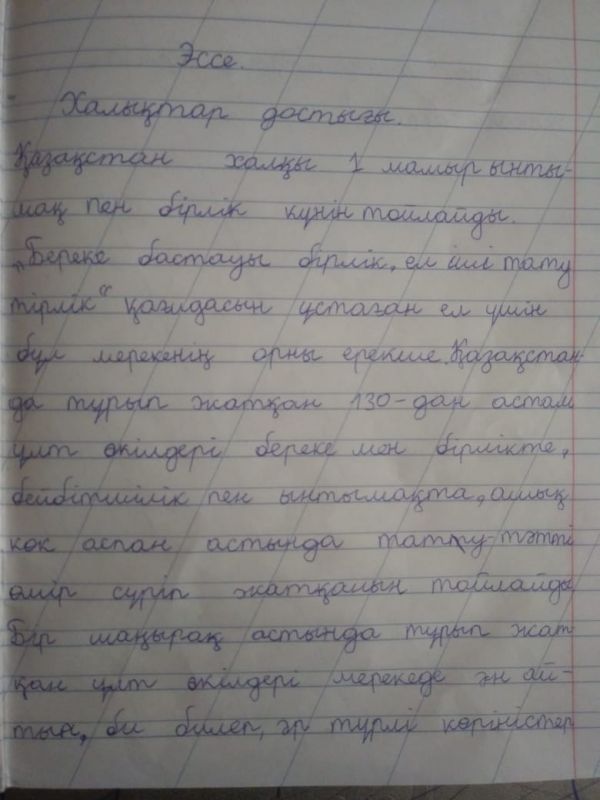 Эссе.
Халықтар достығы.
Қазақстан халқы 1 мамыр ынты-
мақ пен бірлік күнін тойлайды.
„Береке бастауы бірлік, ел іші тату
тірлік“ қағидасын ұстаған ел үшін
бұл мерекенің орны ерекше. Қазақстан-
да тұрып жатқан 130-дан астам
ұлт өкілдері береке мен бірлікте,
бейбітшілік пен ынтымақта, ашық
көк аспан астында татту-тәтті
өмір сүріп жатқанын тойлайды
Бір шаңырақ астында тұрып жат
қан ұлт өкілдері мерекеде ән ай-
тып, би билеп, әр түрлі көріністер